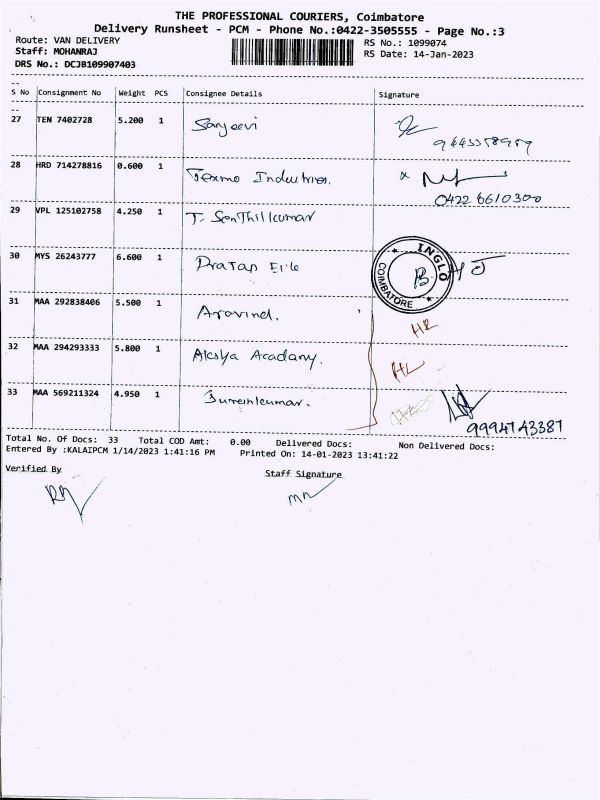 THE PROFESSIONAL COURIERS, Coimbatore
Delivery Runsheet - PCM - Phone No.:0422-3505555 - Page No.:3
Route: VAN DELIVERY
RS No.: 1099074
Staff: MOHANRAJ
RS Date: 14-Jan-2023
DRS No.: DCJB109907403
S No Consignment No Weight PCS Consignee Details Signature
27 TEN 7402728 5.200 1 Sanjeevi
28 HRD 714278816 0.600 1 Texmo Industries.
0422 6610300
29 VPL 125102758 4.250 1 T. SenThilkumar
30 MYS 26243777 6.600 1 Pratap
INGLO
COIMBATORE
31 MAA 292838406 5.500 1 Aravind.
32 MAA 294293333 5.800 1 Akshya Acadamy.
33 MAA 569211324 4.950 1 Sureshkumar.
9994743387
Total No. Of Docs: 33 Total COD Amt: 0.00 Delivered Docs: Non Delivered Docs:
Entered By :KALAIPCM 1/14/2023 1:41:16 PM Printed On: 14-01-2023 13:41:22
Verified By Staff Signature